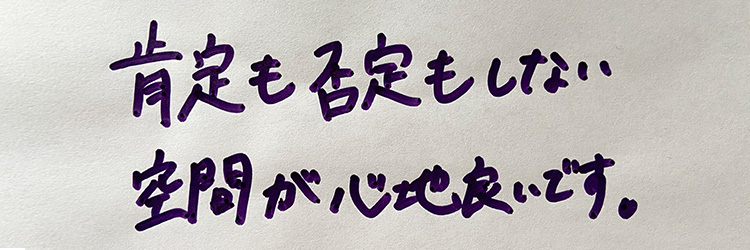 肯定も否定もしない
空間が心地良いです。